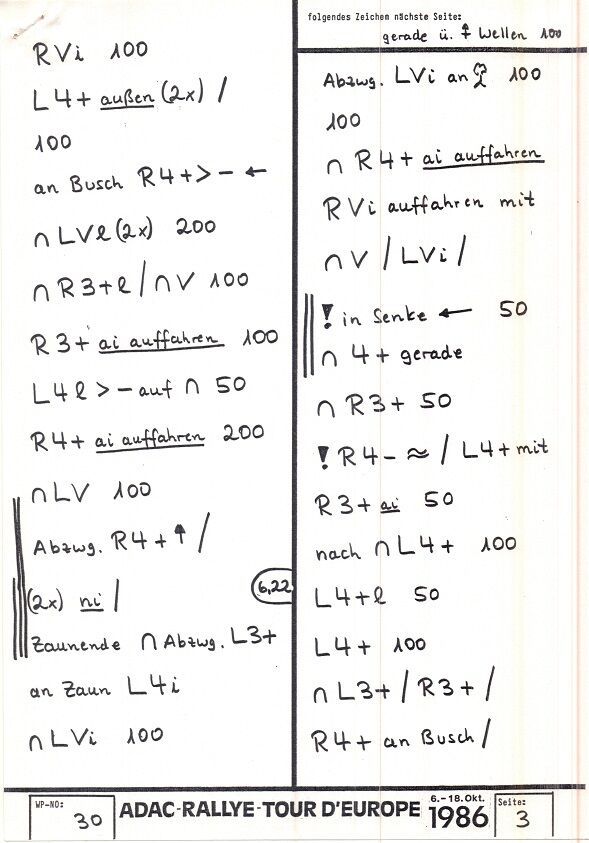 RVi 100
L4+ außen (2x) /
100
an Busch R4+>- ←
∩ LVl (2x) 200
∩ R3+l / ∩ V 100
R3+ ai auffahren 100
L4l >- auf ∩ 50
R4+ ai auffahren 200
∩ LV 100
Abzwg. R4+ ↑ /
(2x) ni /
6,22
Zaunende ∩ Abzwg. L3+
an Zaun L4i
∩ LVi 100
folgendes Zeichen nächste Seite:
gerade ü. ↑ Wellen 100
Abzwg. LVi an 100
100
∩ R4+ ai auffahren
RVi auffahren mit
∩ V / LVi /
! in Senke ← 50
∩ 4+ gerade
∩ R3+ 50
! R4- ≈ / L4+ mit
R3+ ai 50
nach ∩ L4+ 100
L4+l 50
L4+ 100
∩ L3+ / R3+ /
R4+ an Busch /
WP-NO: 30
ADAC-RALLYE-TOUR D'EUROPE 6.-18.Okt. 1986
Seite: 3